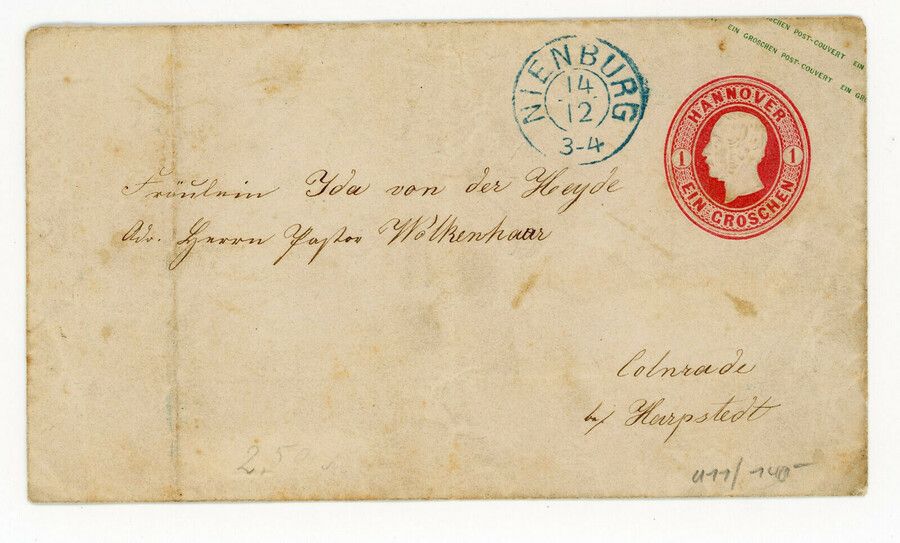 EIN GROSCHEN POST-COUVERT EIN
EIN GROSCHEN POST-COUVERT EIN GRO
NIENBURG
14
12
3-4
HANNOVER
1 1
EIN GROSCHEN
Fräulein Ida von der Heyde
Adr. Herrn Pastor Wolkenhaar
Colnrade
bei Harpstedt
2,50
u11/140-